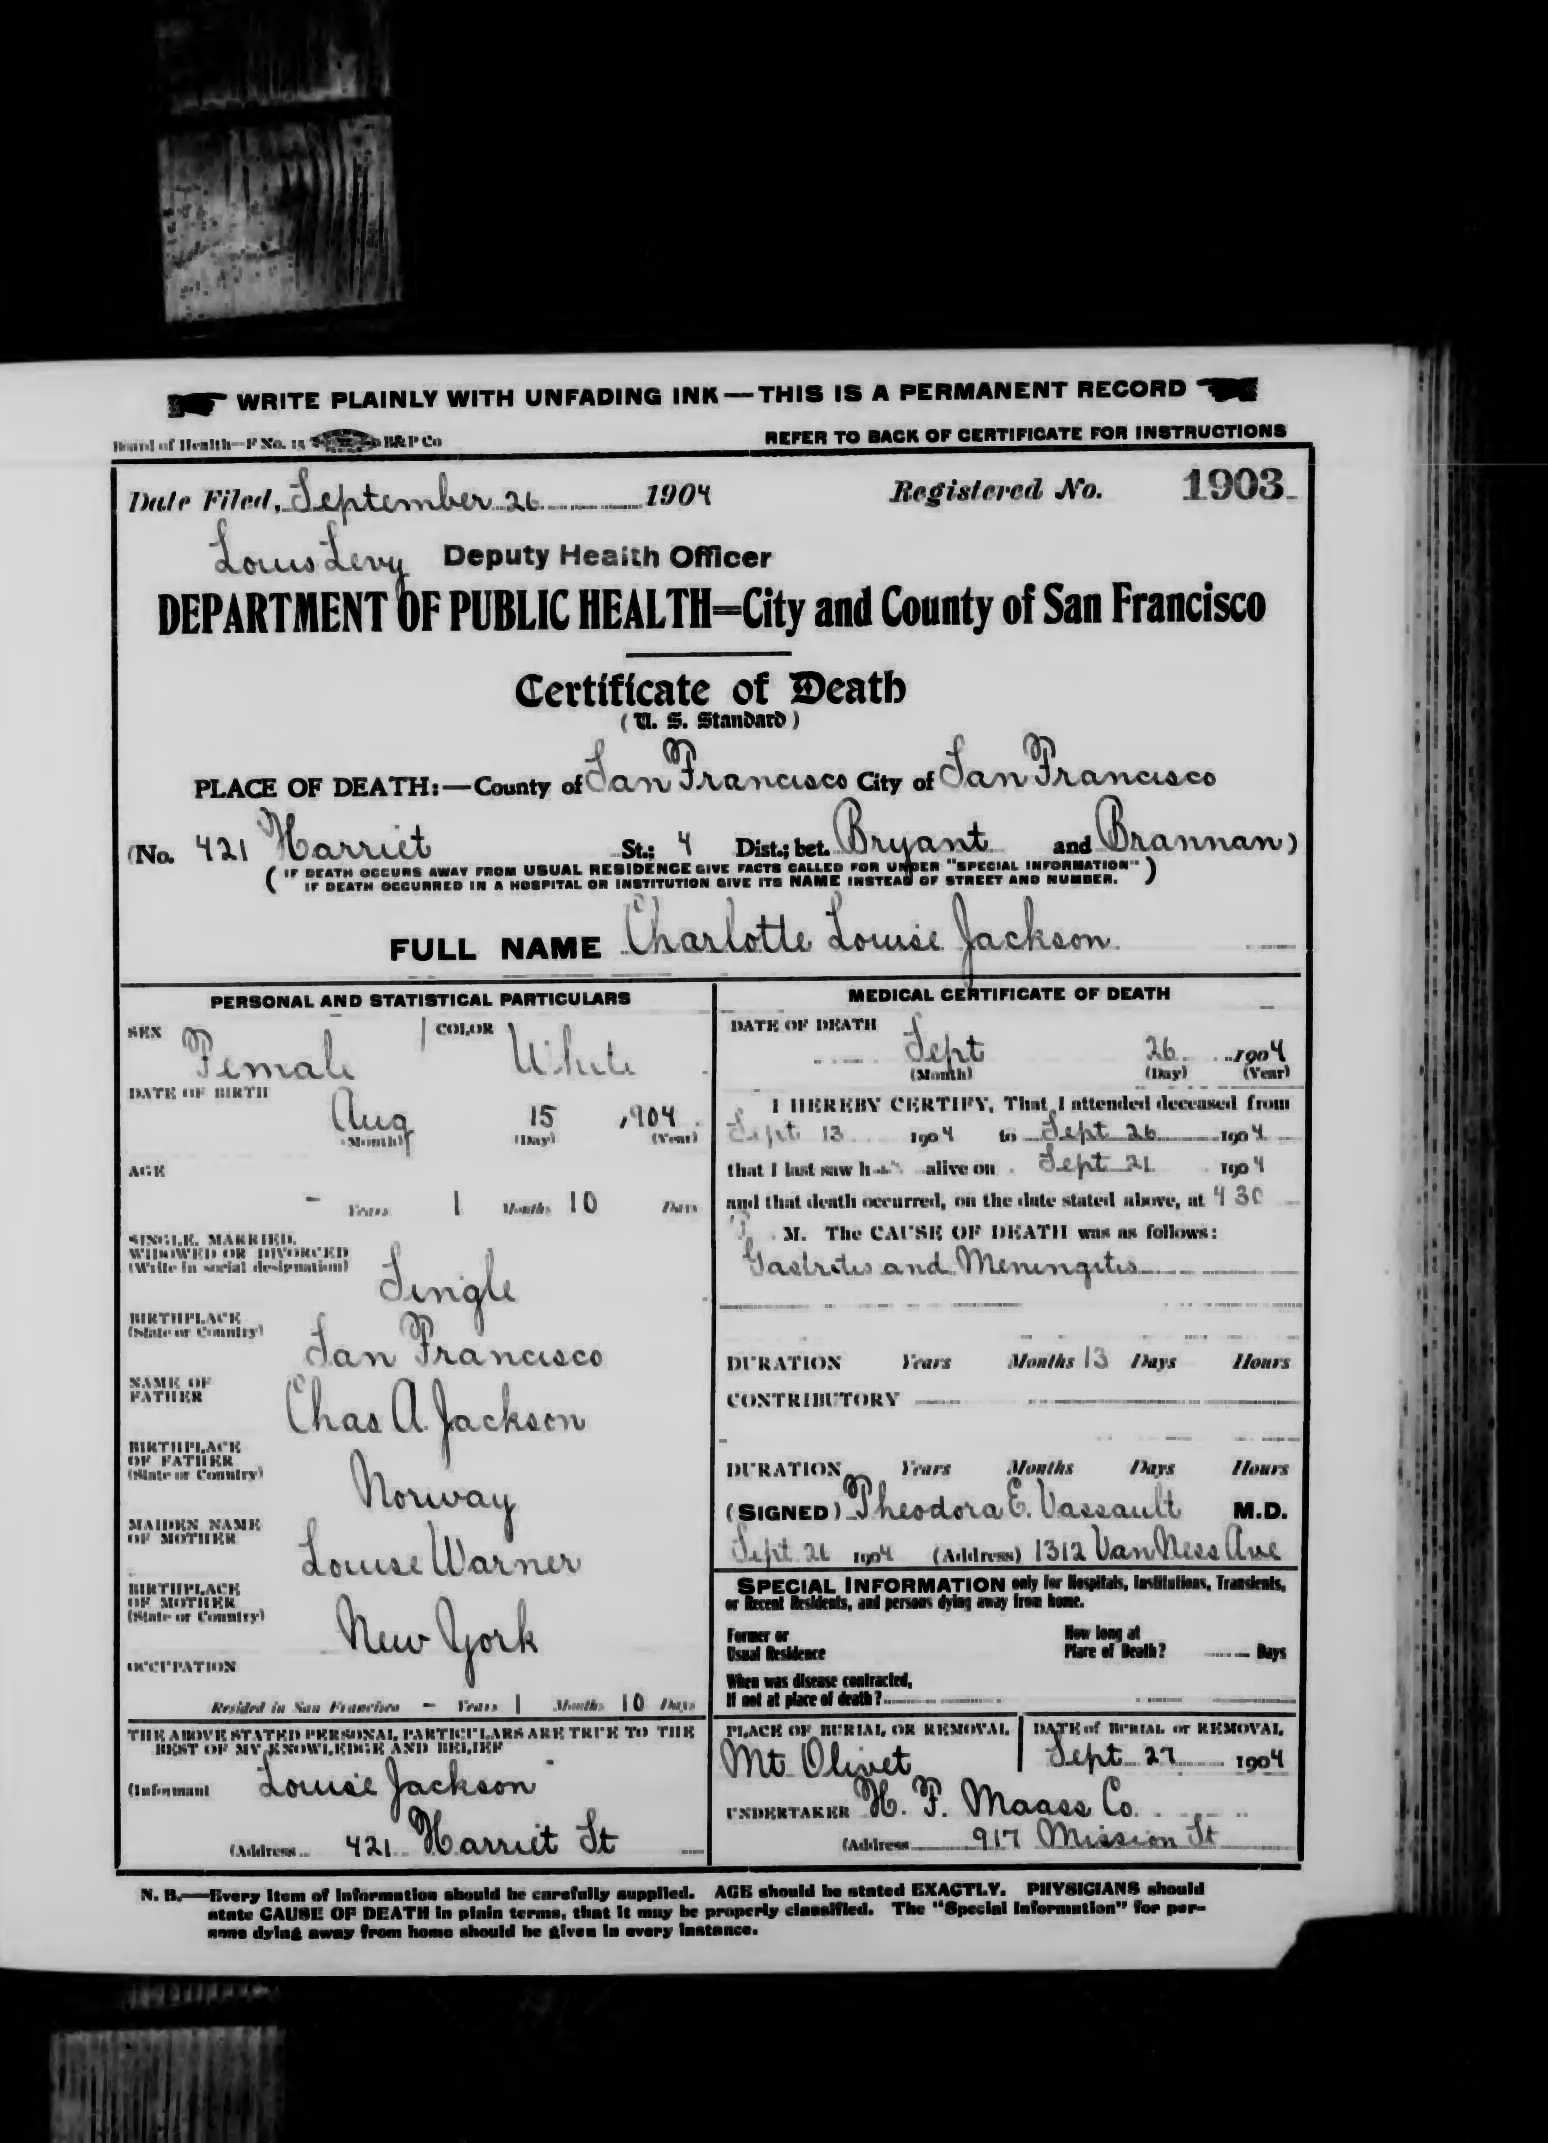 WRITE PLAINLY WITH UNFADING INK—THIS IS A PERMANENT RECORD
Board of Health—F No. 15 B&P Co REFER TO BACK OF CERTIFICATE FOR INSTRUCTIONS
Date Filed, September 26 1904 Registered No. 1903
Louis Levy Deputy Health Officer
DEPARTMENT OF PUBLIC HEALTH=City and County of San Francisco
Certificate of Death
(U. S. Standard)
PLACE OF DEATH:—County of San Francisco City of San Francisco
(No. 421 Harriet St.; 4 Dist.; bet. Bryant and Brannan)
(IF DEATH OCCURS AWAY FROM USUAL RESIDENCE GIVE FACTS CALLED FOR UNDER "SPECIAL INFORMATION"
IF DEATH OCCURRED IN A HOSPITAL OR INSTITUTION GIVE ITS NAME INSTEAD OF STREET AND NUMBER.)
FULL NAME Charlotte Louise Jackson
PERSONAL AND STATISTICAL PARTICULARS
SEX Female COLOR White
DATE OF BIRTH
Aug 15 1904
(Month) (Day) (Year)
AGE
- Years 1 Months 10 Days
SINGLE, MARRIED,
WIDOWED OR DIVORCED
(Write in social designation)
Single
BIRTHPLACE
(State or Country)
San Francisco
NAME OF
FATHER
Chas A. Jackson
BIRTHPLACE
OF FATHER
(State or Country)
Norway
MAIDEN NAME
OF MOTHER
Louise Warner
BIRTHPLACE
OF MOTHER
(State or Country)
New York
OCCUPATION
Resided in San Francisco - Years 1 Months 10 Days
THE ABOVE STATED PERSONAL PARTICULARS ARE TRUE TO THE
BEST OF MY KNOWLEDGE AND BELIEF
(Informant Louise Jackson
(Address 421 Harriet St
MEDICAL CERTIFICATE OF DEATH
DATE OF DEATH
Sept 26 1904
(Month) (Day) (Year)
I HEREBY CERTIFY, That I attended deceased from
Sept 13 1904 to Sept 26 1904
that I last saw h alive on Sept 21 1904
and that death occurred, on the date stated above, at 4 30
P. M. The CAUSE OF DEATH was as follows:
Gastritis and Meningitis
DURATION Years Months 13 Days Hours
CONTRIBUTORY
DURATION Years Months Days Hours
(SIGNED) Theodora E. Vassault M.D.
Sept 26 1904 (Address) 1312 Van Ness Ave
SPECIAL INFORMATION only for Hospitals, Institutions, Transients,
or Recent Residents, and persons dying away from home.
Former or
Usual Residence
How long at
Place of Death? Days
When was disease contracted,
If not at place of death?
PLACE OF BURIAL OR REMOVAL
Mt Olivet
DATE of BURIAL or REMOVAL
Sept 27 1904
UNDERTAKER H. F. Maass Co.
(Address 917 Mission St
N. B.—Every item of information should be carefully supplied. AGE should be stated EXACTLY. PHYSICIANS should
state CAUSE OF DEATH in plain terms, that it may be properly classified. The "Special Information" for per-
sons dying away from home should be given in every instance.